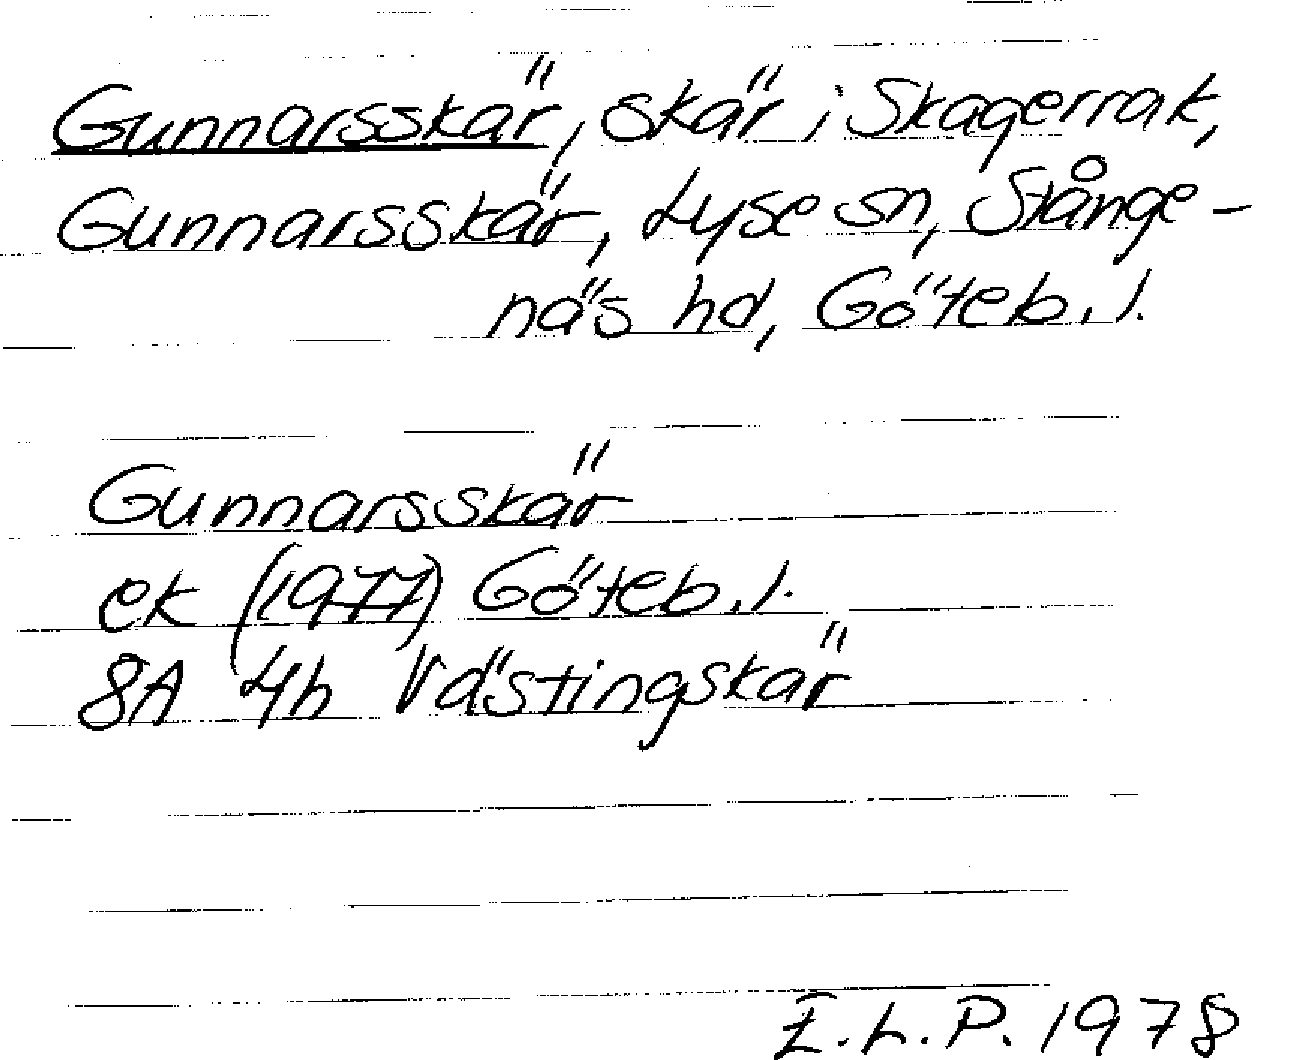 Gunnarsskär, skär i Skagerrak,
Gunnarsskär, Lyse sn, Stånge-
näs hd, Göteb. l.
Gunnarsskär
ek (1977) Göteb. l.
8A 4h Västingskär
E.L.P. 1978